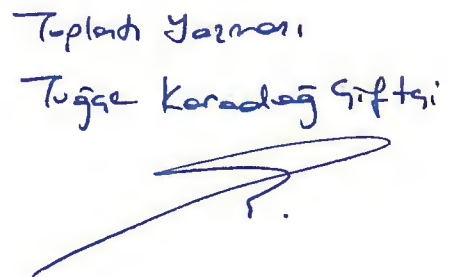 Toplantı Yazmanı
Tuğçe Karadağ Çiftçi